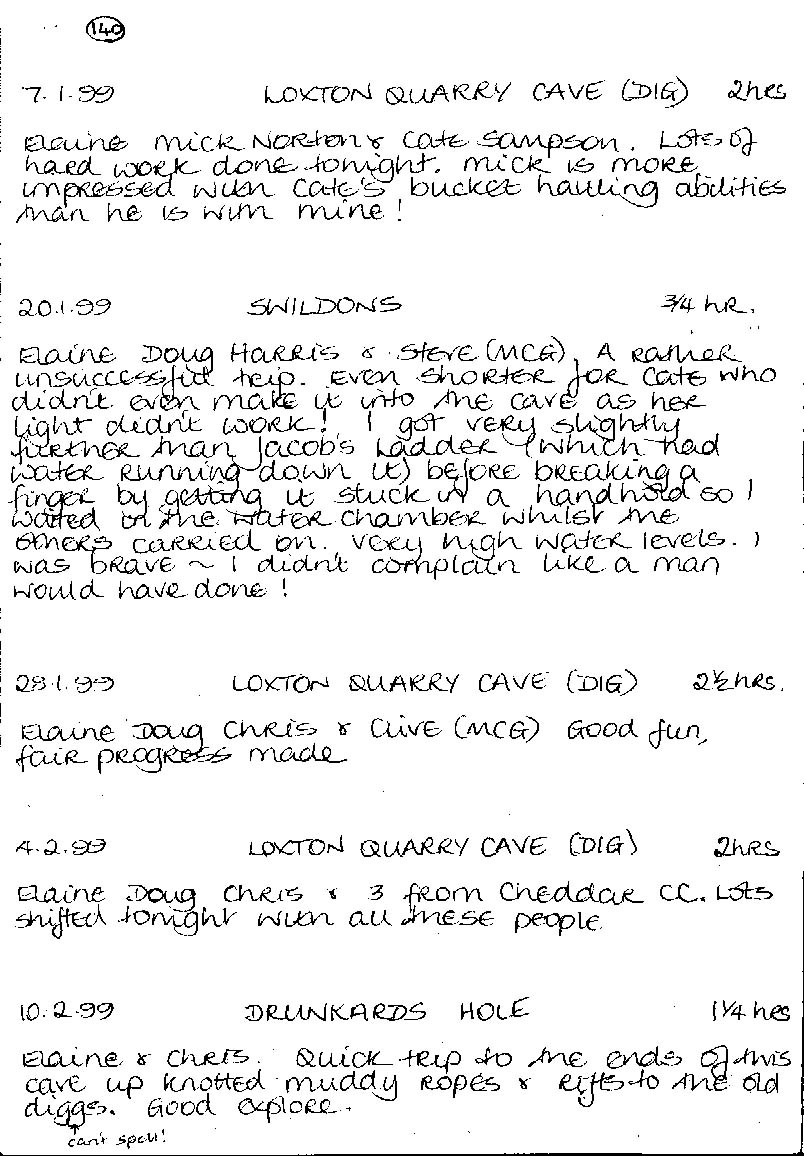 140
7.1.99 LOXTON QUARRY CAVE (DIG) 2hrs
Elaine Mick Norton & Cate Sampson. Lots of
hard work done tonight. Mick is more
impressed with Cate's bucket hauling abilities
than he is with mine!
20.1.99 SWILDONS 3/4 hR.
Elaine Doug Harris & Steve (MCG). A rather
unsuccessful trip. Even shorter for Cate who
didn't even make it into the cave as her
light didn't work! I got very slightly
further than Jacob's Ladder (which had
water running down it) before breaking a
finger by getting it stuck in a handhold so I
waited in the water chamber whilst the
others carried on. Very high water levels. I
was brave ~ I didn't complain like a man
would have done!
28.1.99 LOXTON QUARRY CAVE (DIG) 2½hRs.
Elaine Doug Chris & Clive (MCG) Good fun,
fair progress made
4.2.99 LOXTON QUARRY CAVE (DIG) 2hRs
Elaine Doug Chris & 3 from Cheddar CC. Lots
shifted tonight with all these people.
10.2.99 DRUNKARDS HOLE 1¼ hrs
Elaine & Chris. Quick trip to the ends of this
cave up knotted muddy ropes & rifts to the old
diggs. Good explore.
can't spell!